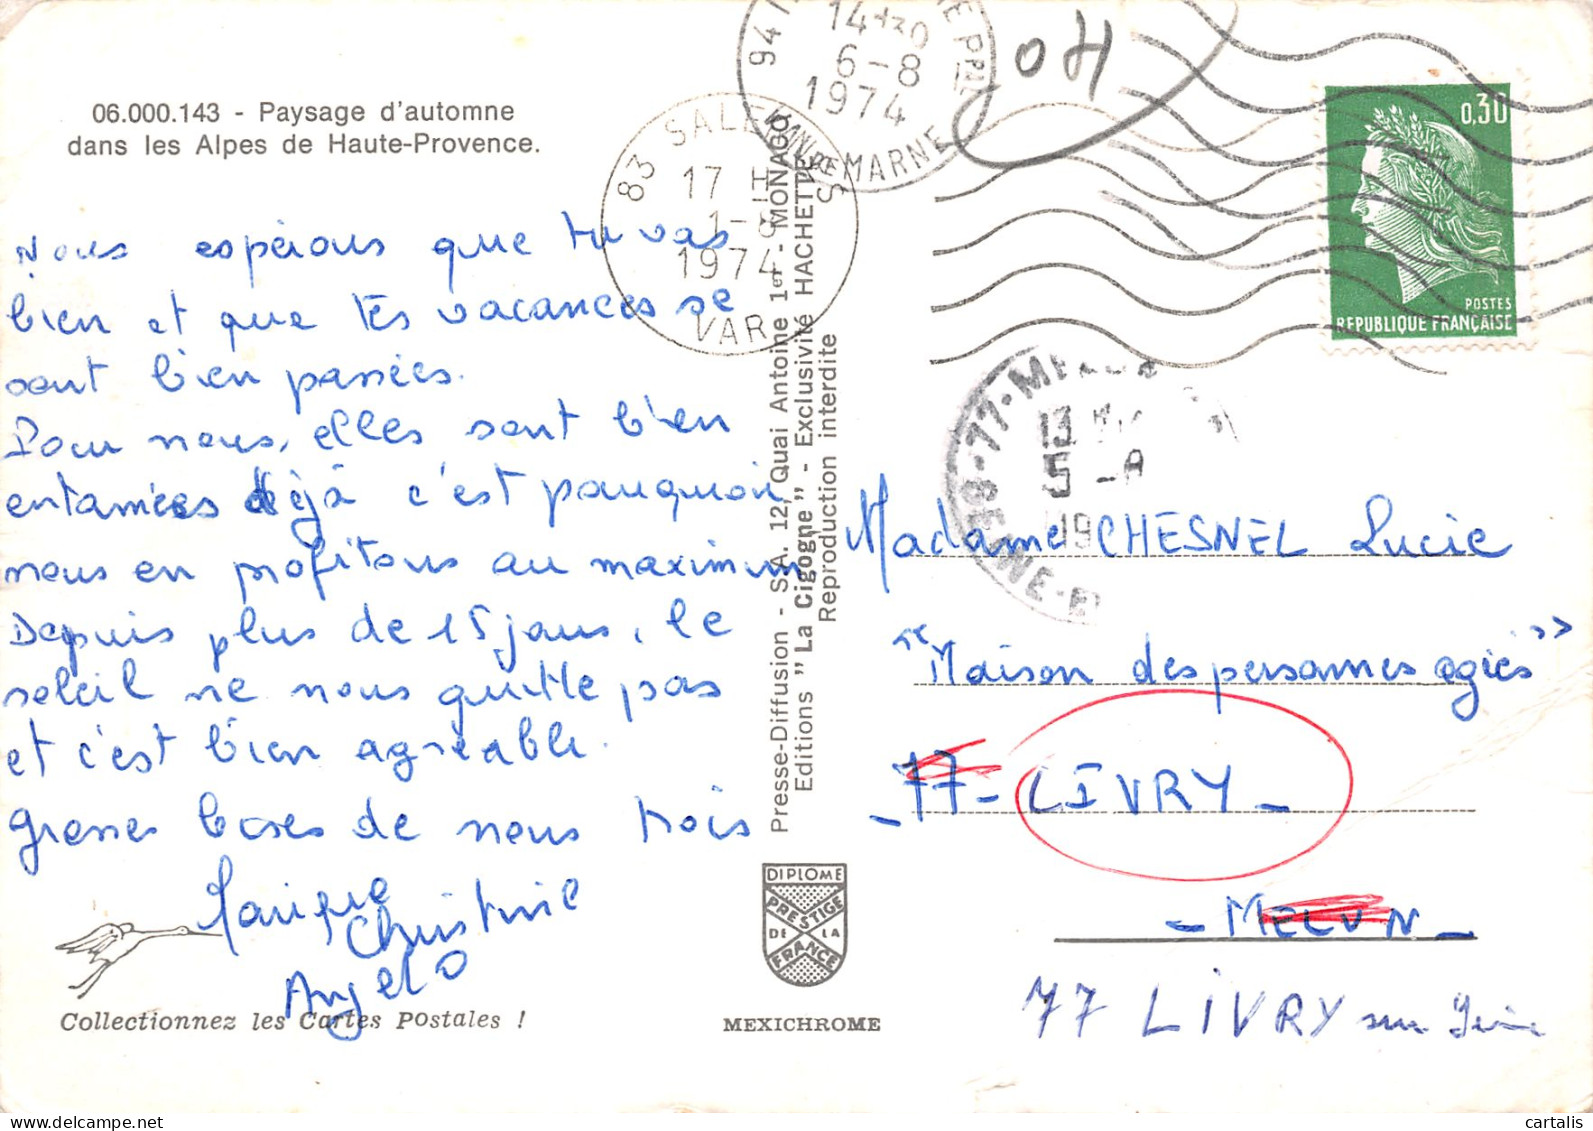 06.000.143 - Paysage d'automne
dans les Alpes de Haute-Provence.
Nous espérons que tu vas
bien et que tes vacances se
sont bien passées.
Pour nous, elles sont bien
entamées déjà c'est pourquoi
nous en profitons au maximum
Depuis plus de 15 jours, le
soleil ne nous quitte pas
et c'est bien agréable.
grosses bises de nous trois
Christine
Angelo
Collectionnez les Cartes Postales !
Presse-Diffusion - S.A. 12, Quai Antoine 1er - MONACO
Editions "La Cigogne" - Exclusivité HACHETTE
Reproduction interdite
DIPLOME
PRESTIGE
DE LA
FRANCE
MEXICHROME
83 SALERNES
17 H
1-8
1974
VAR
94
14 H30
6-8
1974
MARNE
OH
0,30
POSTES
REPUBLIQUE FRANÇAISE
77
13
5 -8
19
Madame CHESNEL Lucie
"Maison des personnes agées"
- 77 - LIVRY -
- MELUN -
77 LIVRY sur Seine